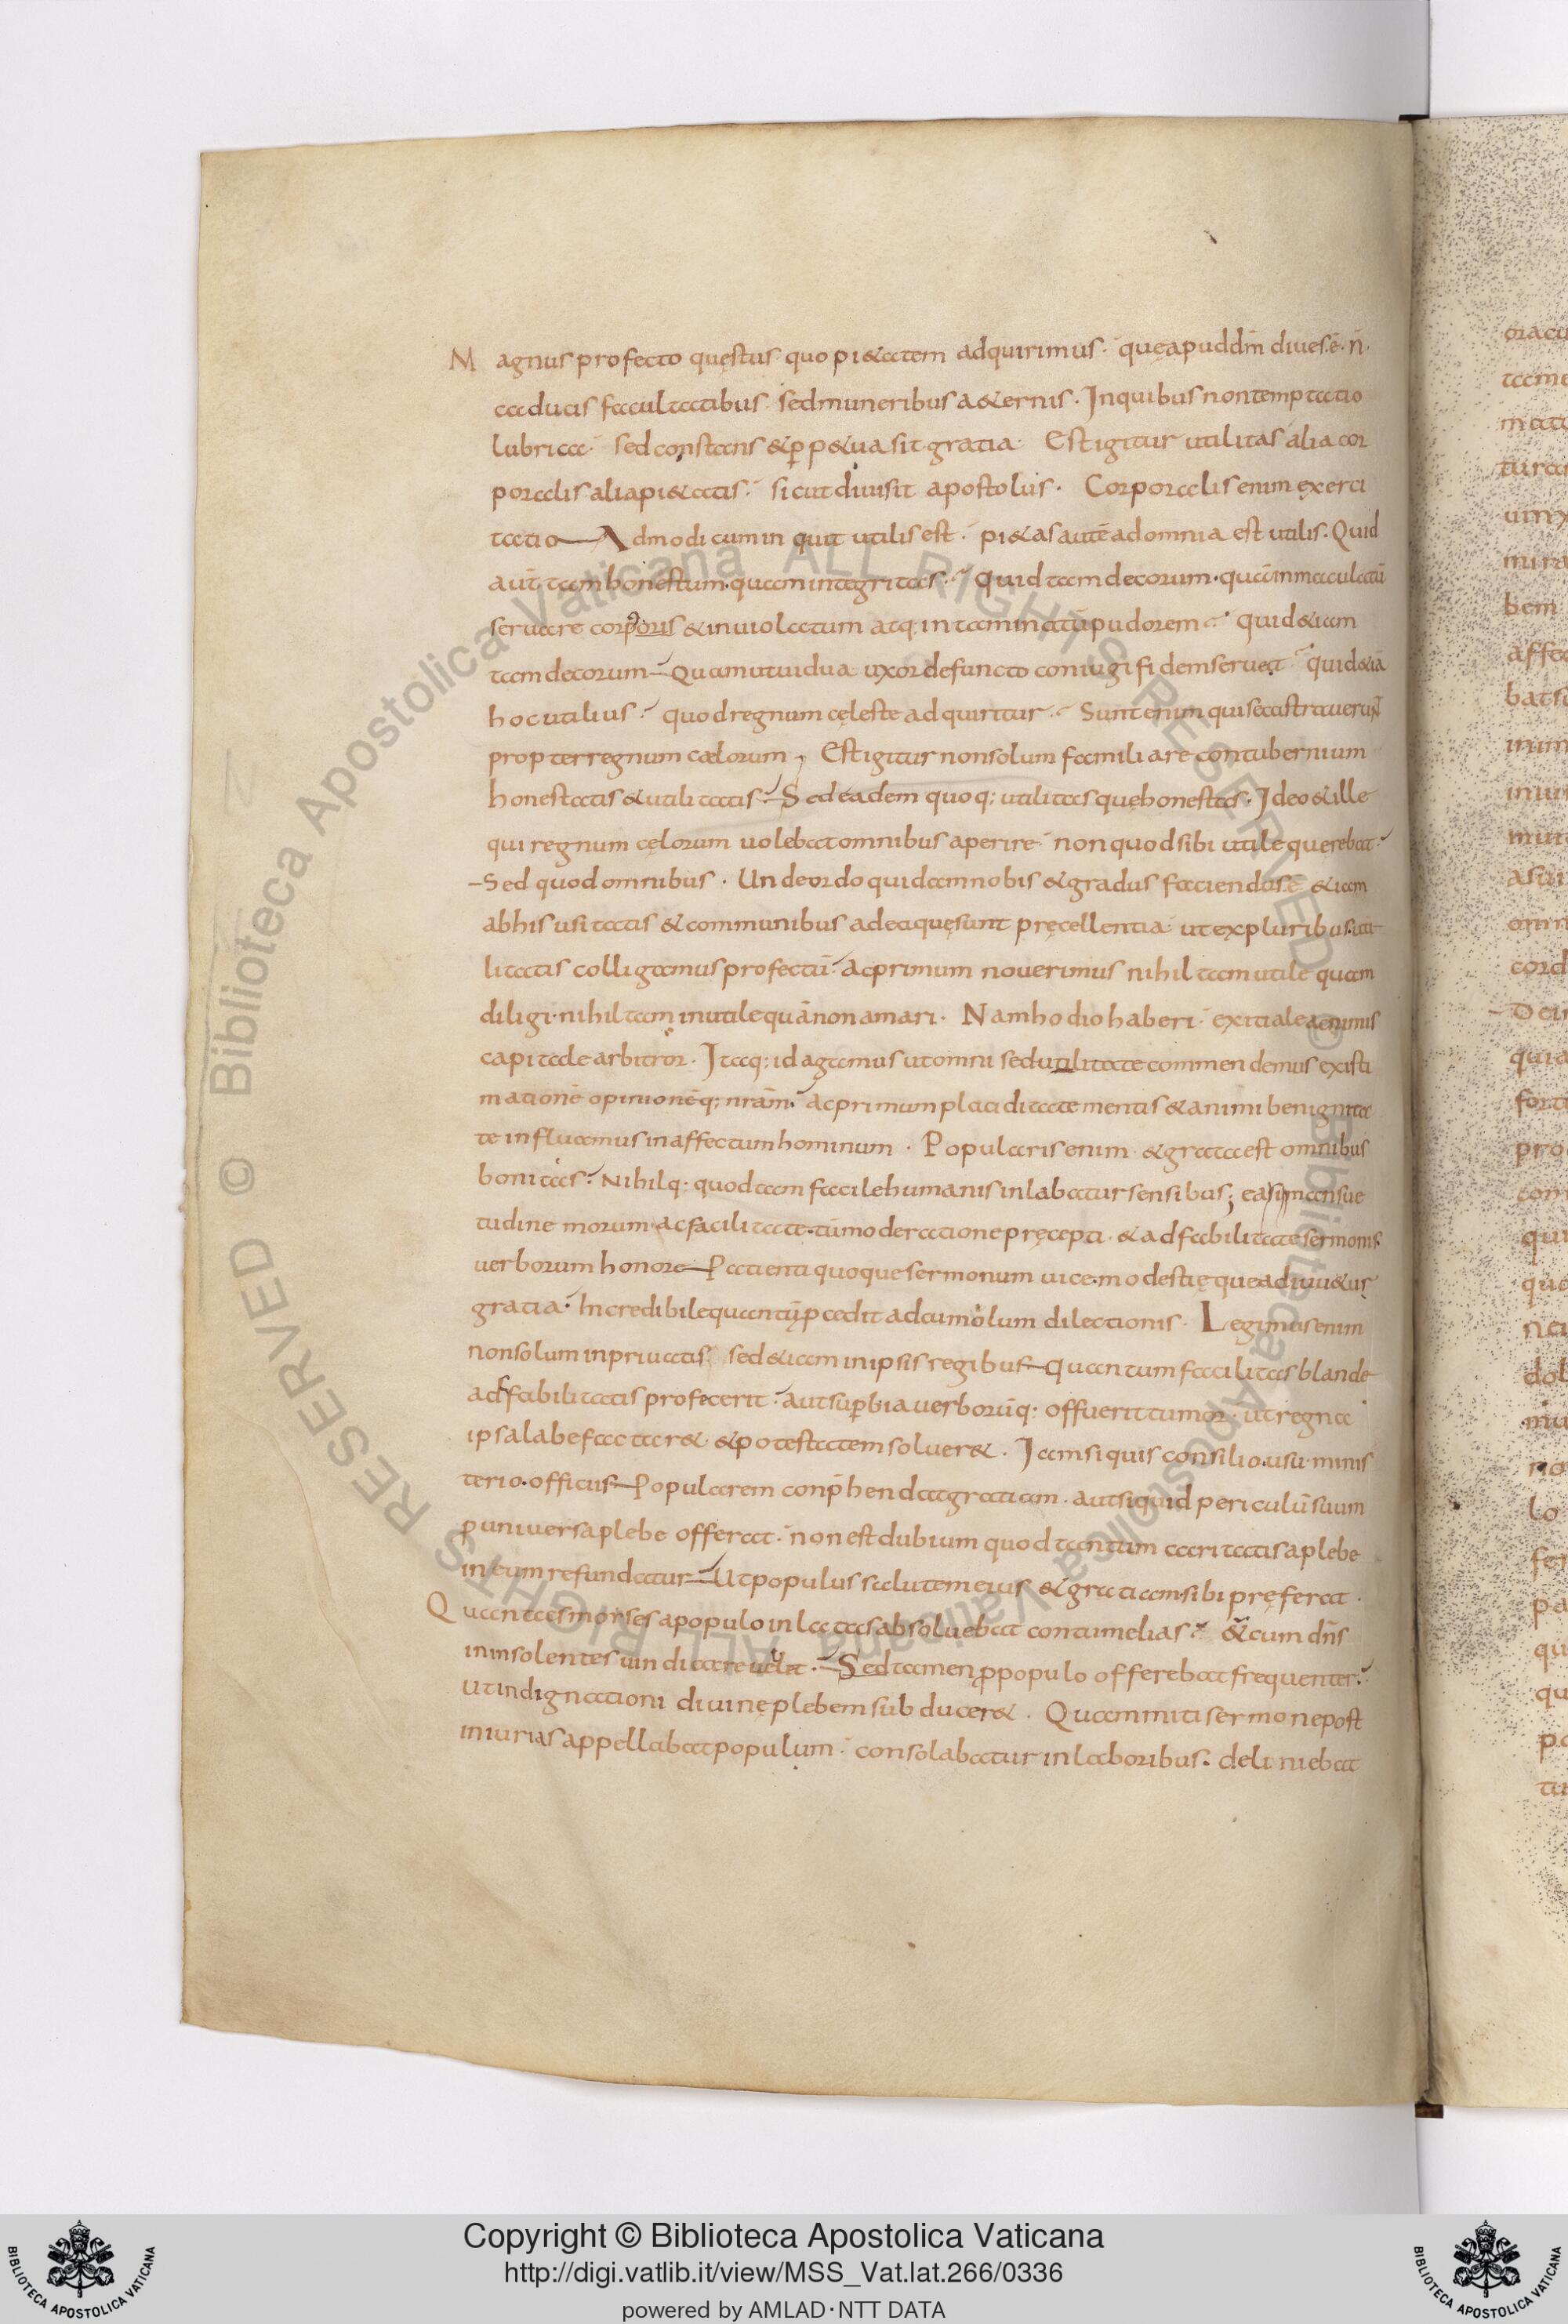 Magnus profecto quęstus quo pi&atem adquirimus· quęapuddm̄ diues.ē·n̄·
caducis facultatibus· sedmuneribus a&ernis· Inquibus nontemptatio
lubrica· sed constans &ꝑp&ua sit gratia· Estigitur utilitas alia cor
poralis aliapi&atis· sicut diuisit apostolus· Corporalis enim exerci
tatio Admodicum in quit utilis est· pi&as autē adomnia est utilis· Quid
aut̄ tam honestum·quam integritas· quid tam decorum·quāinmaculatū
seruare corporis &inuiolatum atq; intaminatū pudorem quid&iam
tam decorum Quam ut uidua uxor defuncto coniugi fidem seruet quid&iā
hoc utilius· quod regnum cęleste adquiritur· Sunt enim qui secastrauerunt
propter regnum cælorum; Estigitur nonsolum familiare contubernium
honestatis &utilitatis· Sed eadem quoq; utilitas quęhonestas· Ideo&ille
qui regnum cęlorum uolebat omnibus aperire· non quod sibi utile querebat·
Sed quod omnibus· Unde ordo quidam nobis &gradus faciendus.ē &iam
abhis usitatis &communibus adea quęsunt pręcellentia· ut ex pluribus uti
litatis colligamus profectū· ac primum nouerimus nihil tam utile quam
diligi·nihil tam inutile quānon amari· Nam hodio haberi· exitiale acnimis
capitale arbitror· Itaq; id agamus ut omni sedulitate commendemus existi
mationē opinionēq; nrām· ac primum placiditate mentis &animi benignita
te influamus in affectum hominum· Popularis enim &grata est omnibus
bonitas· Nihilq; quod tam facile humanis inlabatur sensibus; ea si mansue
tudine morum·ac facilitate·tūmoderatione pręcepti &adfabilitate sermonis·
uerborum honore Patienti quoque sermonum uice·modestię que adiuu&ur
gratia· Incredibile quantūꝑcedit adcumolum dilectionis· Legimus enim
nonsolum inpriuatis· sed &iam inipsis regibus Quantum facilitas blande
adfabilitatis profecerit· aut suꝑbia uerborūq; offuerit tumor· ut regna
ipsa labefactar& &potestatem soluer&· Iam si quis consilio·usu·minis
terio·officiis Popularem conp̄hendat gratiam· aut siquid periculū suum
ꝓ uniuersa plebe offerat· non est dubium quod tantum caritatis a plebe
in eum refundatur Ut populus salutem eius &gratiam sibi pręferat·
Quantas morses a populo inlatas absoluebat contumelias· &cum dn̄s
in insolentes uindicare uellet· Sed tamen ꝓpopulo offerebat frequenter·
Ut indignationi diuinę plebem subducer&· Quam miti sermone post
iniurias appellabat populum· consolabatur in laboribus· deliniebat
Copyright © Biblioteca Apostolica Vaticana
http://digi.vatlib.it/view/MSS_Vat.lat.266/0336
powered by AMLAD·NTT DATA